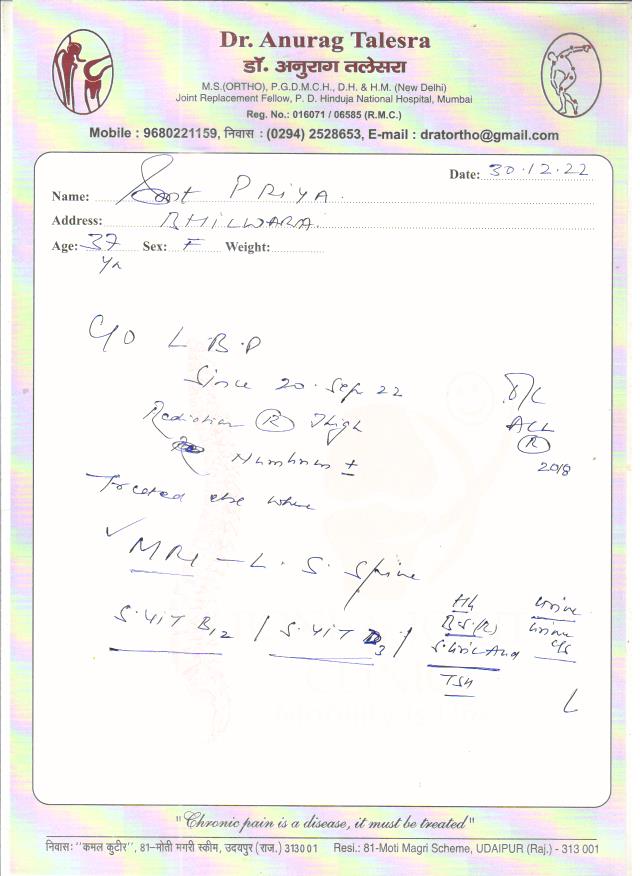 Dr. Anurag Talesra
डॉ. अनुराग तलेसरा
M.S.(ORTHO), P.G.D.M.C.H., D.H. & H.M. (New Delhi)
Joint Replacement Fellow, P. D. Hinduja National Hospital, Mumbai
Reg. No.: 016071 / 06585 (R.M.C.)
Mobile : 9680221159, निवास : (0294) 2528653, E-mail : dratortho@gmail.com
Date: 30.12.22
Name: PRIYA
Address: BHILWARA
Age: 37 Sex: F Weight:
yr
C/O L B P
Since 20. Sep 22
Radiation R Thigh
Numbness ±
ACL
R
2018
Treated else where
✓ MRI - L. S. Spine
S. VIT B12 / S. VIT D3 /
Hb
B.S.(R)
S. Uric Acid
TSH
Urine
Urine
C/S
"Chronic pain is a disease, it must be treated"
निवास: "कमल कुटीर", 81-मोती मगरी स्कीम, उदयपुर (राज.) 313 001 Resi.: 81-Moti Magri Scheme, UDAIPUR (Raj.) - 313 001